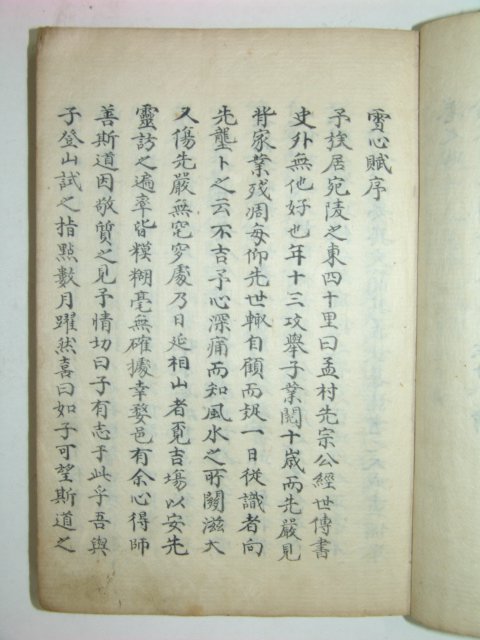 雪心賦序
予族居宛陵之東四十里曰孟村先宗公經世傳書
史外無他好也年十三攻舉子業閱十歲而先嚴見
背家業殘凋每仰先世輙自顧而誤一日從識者向
先壟卜之云不吉予心深痛而知風水之所關滋大
又傷先嚴無窀穸處乃日延相山者覓吉塲以安先
靈訪之遍率皆糢糊毫無確據幸婺邑有余心得師
善斯道因敬質之見予情切曰子有志于此乎吾與
子登山試之指點數月躍然喜曰如子可望斯道之